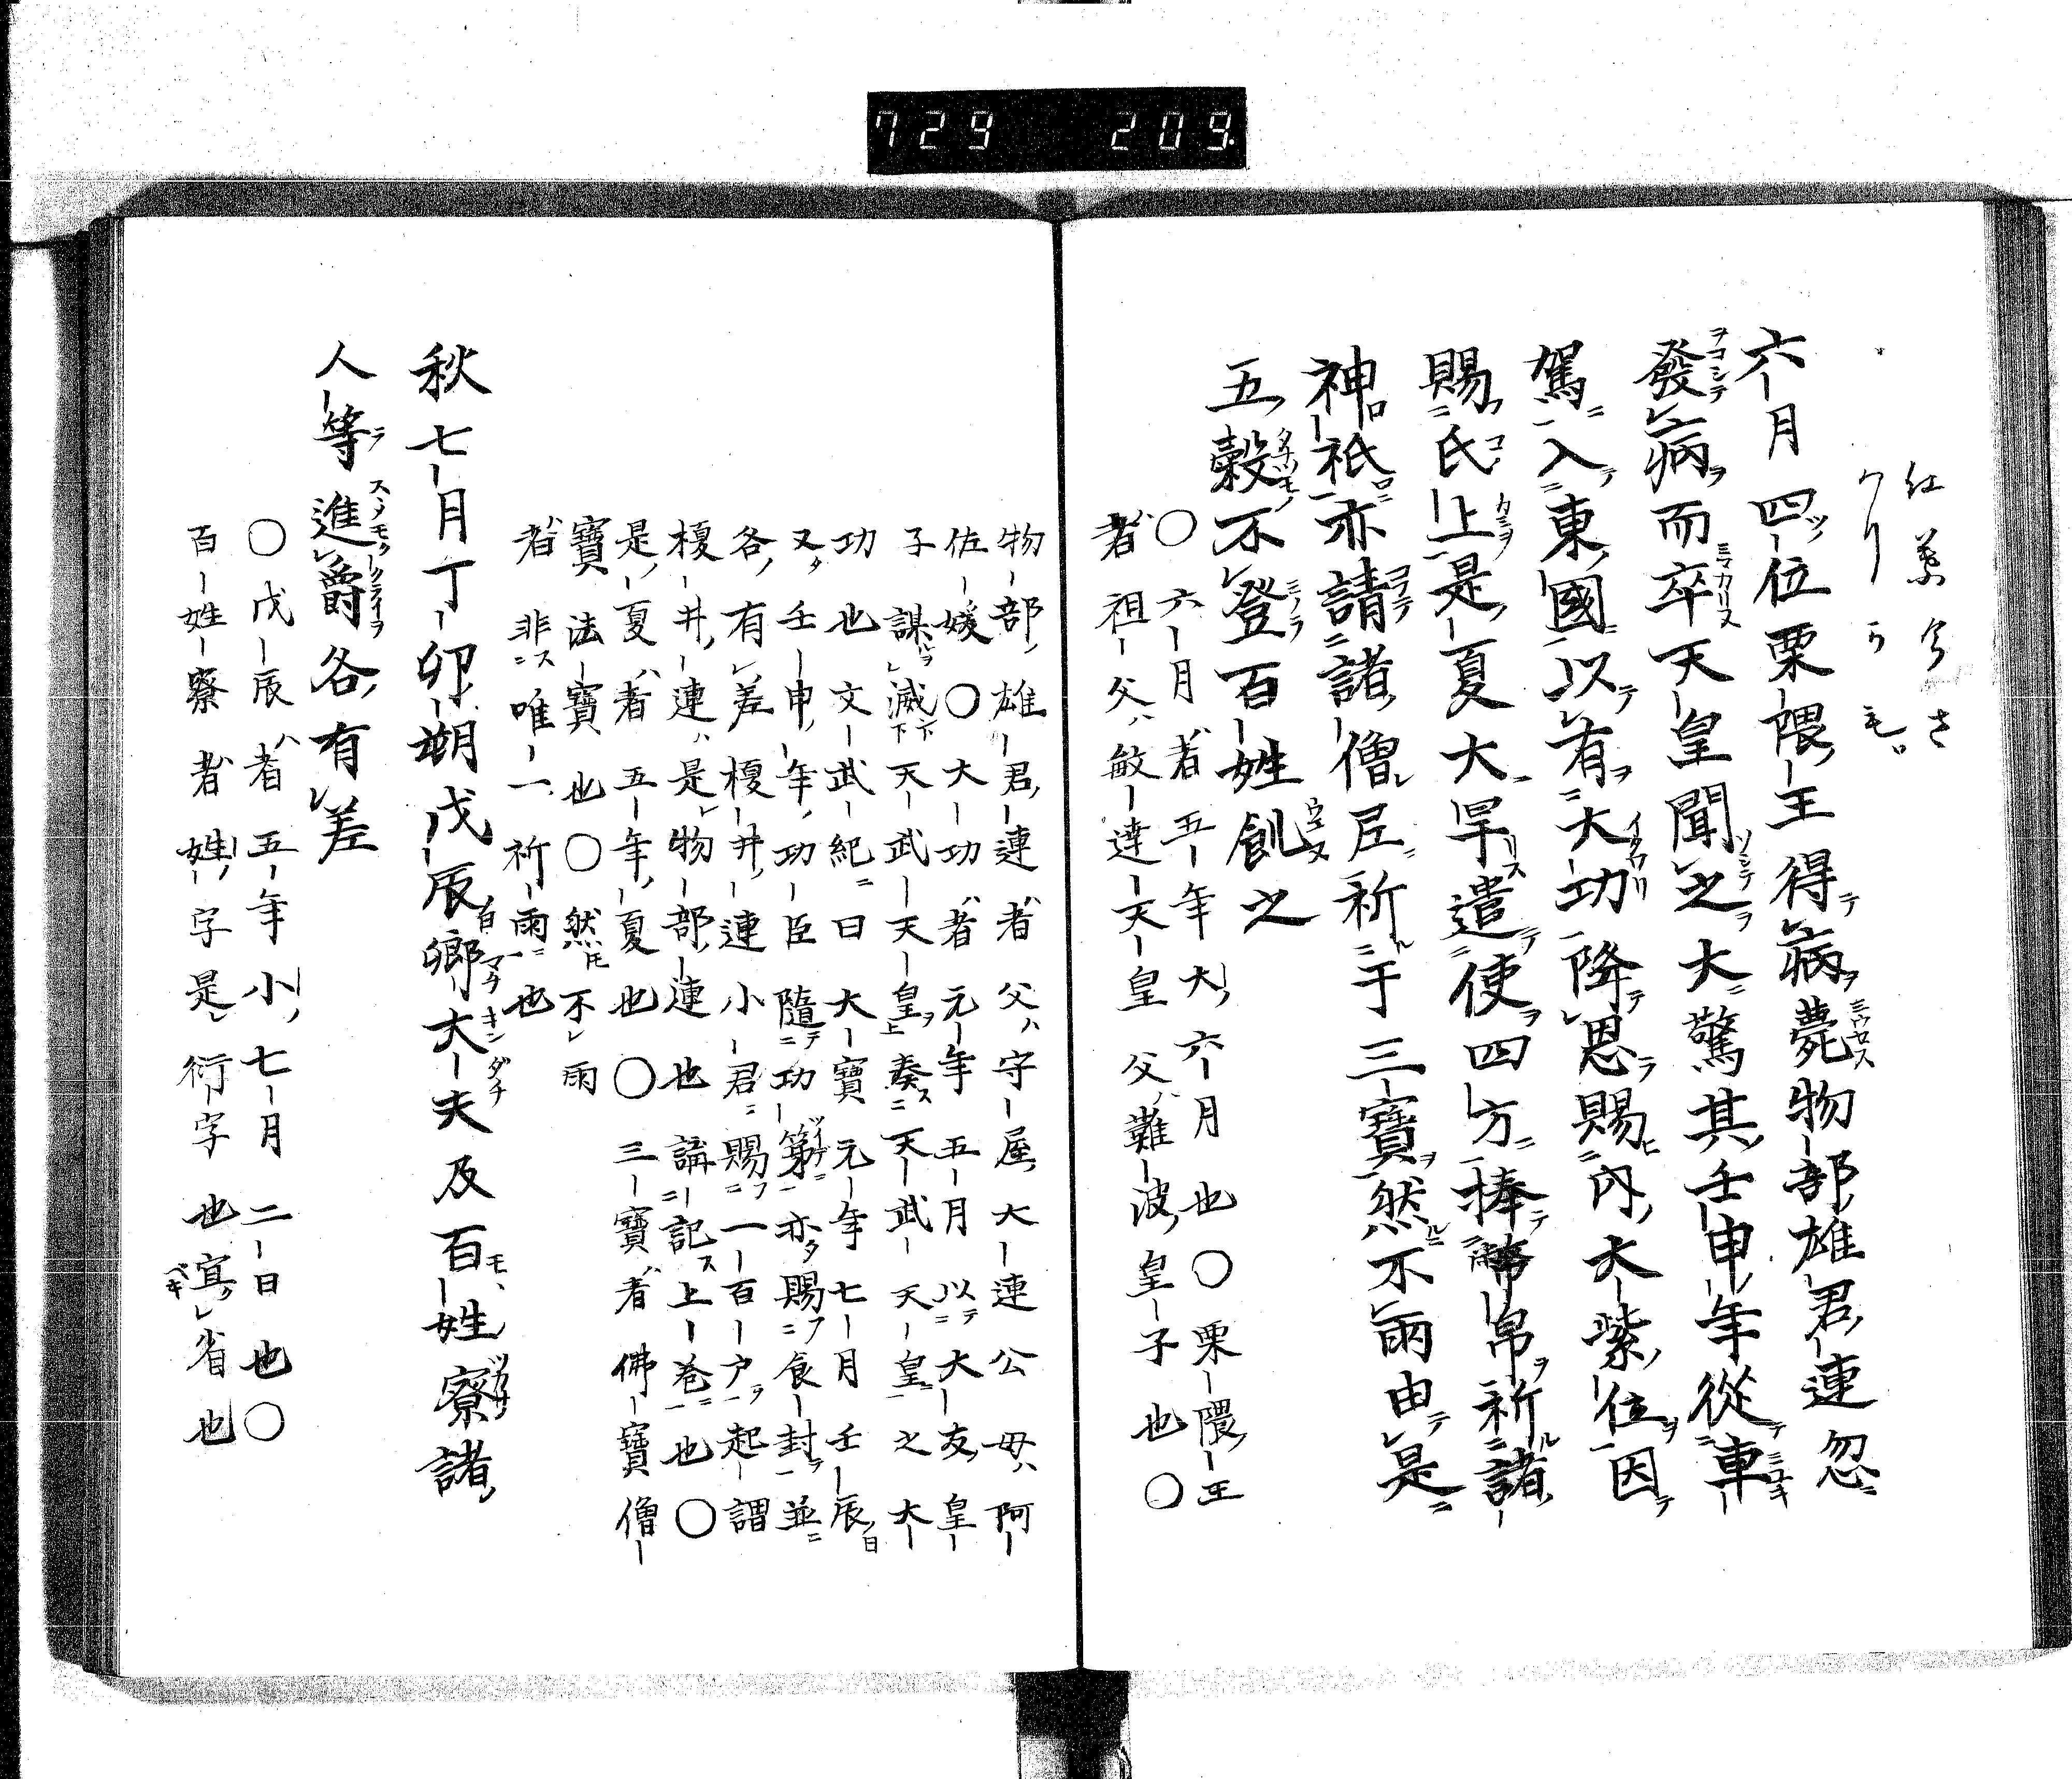 729 209.
六月四位栗隈王得病薨物部雄君連忽
發病而卒天皇聞之大驚其壬申年從車
駕入東國以有大功降恩賜内大紫位因
賜氏上是夏大旱遣使四方捧幣帛祈諸
神祇亦請諸僧尼祈于三寶然不雨由是
五穀不登百姓飢之
〇六月者五年大六月也〇栗隈王
者祖父敏達天皇父難波皇子也〇
物部雄君連者父守屋大連公母阿
佐媛〇大功者元年五月以大友皇
子謀滅天武天皇奏天武天皇之大
功也文武紀曰大寶元年七月壬辰日
又壬申年功臣隨功第亦賜食封並
各有差榎井連小君賜一百戸起謂
榎井連是物部連也講記上巻也〇
是夏者五年夏也〇三寶者佛寶僧
寶法寶也〇然不雨
者非唯一祈雨也
秋七月丁卯朔戊辰卿大夫及百姓寮諸
人等進爵各有差
〇戊辰者五年小七月二日也〇
百姓寮者姓字是衍字也宜省也